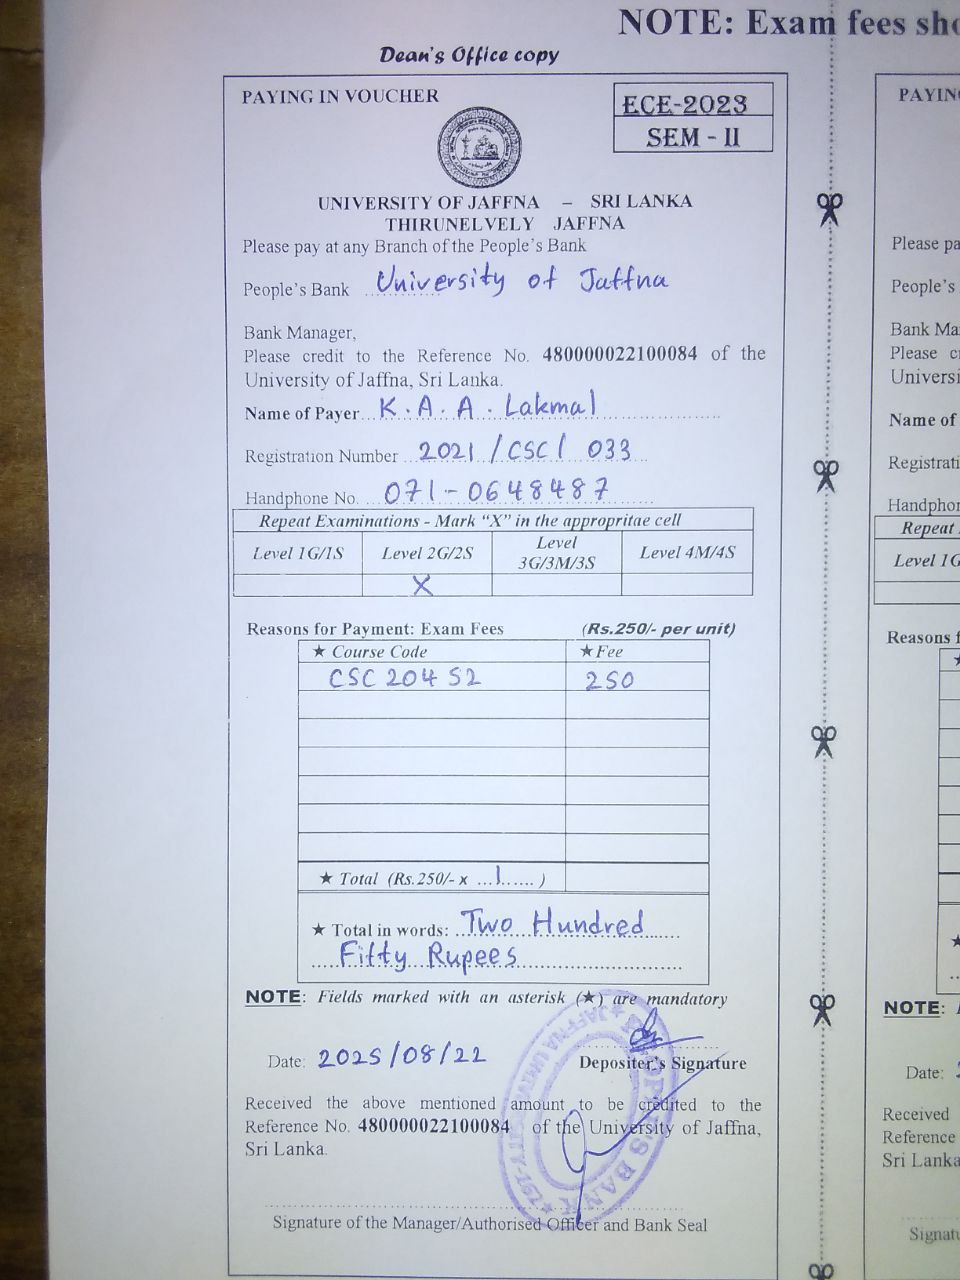 NOTE: Exam fees sho
Dean's Office copy
PAYING IN VOUCHER
ECE-2023
SEM - II
UNIVERSITY OF JAFFNA – SRI LANKA
THIRUNELVELY JAFFNA
Please pay at any Branch of the People's Bank
People's Bank University of Jaffna
Bank Manager,
Please credit to the Reference No. 480000022100084 of the
University of Jaffna, Sri Lanka.
Name of Payer K.A.A. Lakmal
Registration Number 2021/CSC/033
Handphone No. 071-0648487
Repeat Examinations - Mark "X" in the appropritae cell
Level 1G/1S Level 2G/2S Level 3G/3M/3S Level 4M/4S
X
Reasons for Payment: Exam Fees (Rs.250/- per unit)
★ Course Code ★Fee
CSC 204 S2 250
★ Total (Rs.250/- x ...1...... )
★ Total in words: Two Hundred
Fifty Rupees
NOTE: Fields marked with an asterisk (★) are mandatory
Date: 2025/08/22
Depositer's Signature
Received the above mentioned amount to be credited to the
Reference No. 480000022100084 of the University of Jaffna,
Sri Lanka.
Signature of the Manager/Authorised Officer and Bank Seal
PEOPLE'S BANK
JAFFNA UNIVERSITY-162
PAYIN
Please pa
People's
Bank Ma
Please c
Universi
Name of
Registrati
Handphor
Repeat
Level 1G
Reasons f
NOTE:
Date:
Received
Reference
Sri Lanka
Signatu